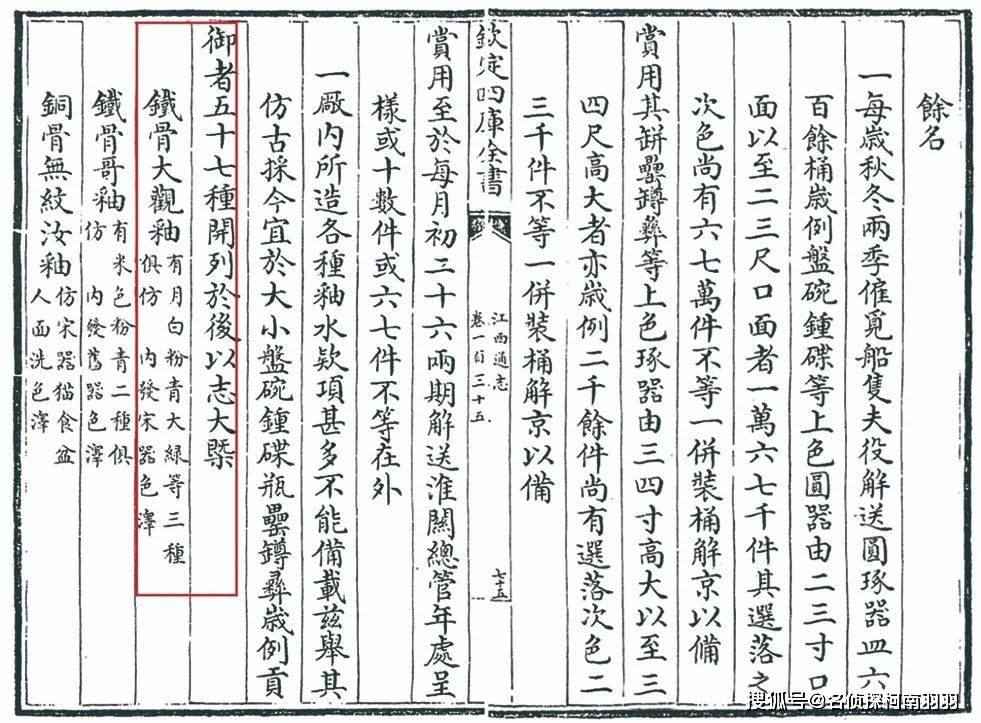 餘名
一每歲秋冬兩季僱覓船隻夫役解送圓琢器皿六
百餘桶歲例盤碗鍾碟等上色圓器由二三寸口
面以至二三尺口面者一萬六七千件其選落之
次色尚有六七萬件不等一併裝桶解京以備
賞用其缾罍罇彝等上色琢器由三四寸高大以至三
四尺高大者亦歲例二千餘件尚有選落次色二
三千件不等一併裝桶解京以備
欽定四庫全書
江西通志
卷一百三十五
七十五
賞用至於每月初二十六兩期解送淮關總管年處呈
樣或十數件或六七件不等在外
一廠內所造各種釉水欵項甚多不能備載茲舉其
仿古採今宜於大小盤碗鍾碟瓶罍罇彝歲例貢
御者五十七種開列於後以志大槩
鐵骨大觀釉
有月白粉青大綠等三種
俱仿 內發宋器色澤
鐵骨哥釉
有米色粉青二種俱
仿 內發舊器色澤
銅骨無紋汝釉
仿宋器猫食盆
人面洗色澤
搜狐号@名侦探河南羽羽